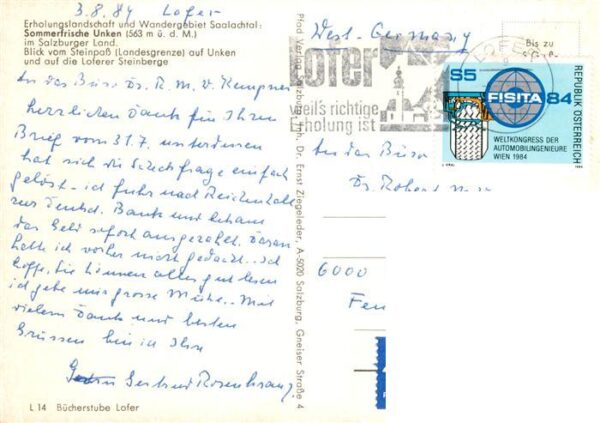 3.8.84 Lofer
Erholungslandschaft und Wandergebiet Saalachtal:
Sommerfrische Unken (563 m ü. d. M.)
im Salzburger Land.
Blick vom Steinpaß (Landesgrenze) auf Unken
und auf die Loferer Steinberge
An das Büro Dr. R. M. W. Kempner
herzlichen Dank für Ihren
Brief vom 31.7. unterdessen
hat sich die Scheckfrage einfach
gelöst - ich fuhr nach Reichenhall
zur Deutsch. Bank und bekam
das Geld sofort ausgezahlt. Daran
hatte ich vorher nicht gedacht... Ich
hoffe, Sie können alles gut lesen
ich gebe mir grosse Mühe.. Mit
vielem Dank und besten
Grüssen bin ich Ihre
Gertrud Rosenkranz
L 14 Bücherstube Lofer
Pfad Verlag Salzburg, Inh. Dr. Ernst Ziegeleder, A-5020 Salzburg, Gneiser Straße 4
West-Germany
Lofer
weil's richtige
Erholung ist
LOFER
Bis zu
S5
FISITA 84
WELTKONGRESS DER
AUTOMOBILINGENIEURE
WIEN 1984
REPUBLIK ÖSTERREICH
An das Büro
Dr. Robert
6000